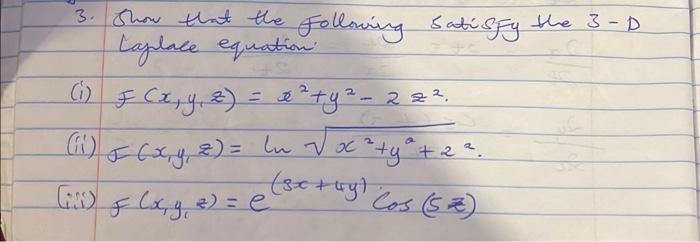 3. Show that the following satisfy the 3-D
Laplace equation:
(i) F(x, y, z) = x² + y² - 2z².
(ii) F(x, y, z) = ln √x² + y² + z².
(iii) F(x, y, z) = e^(3x + 4y) Cos(5z)